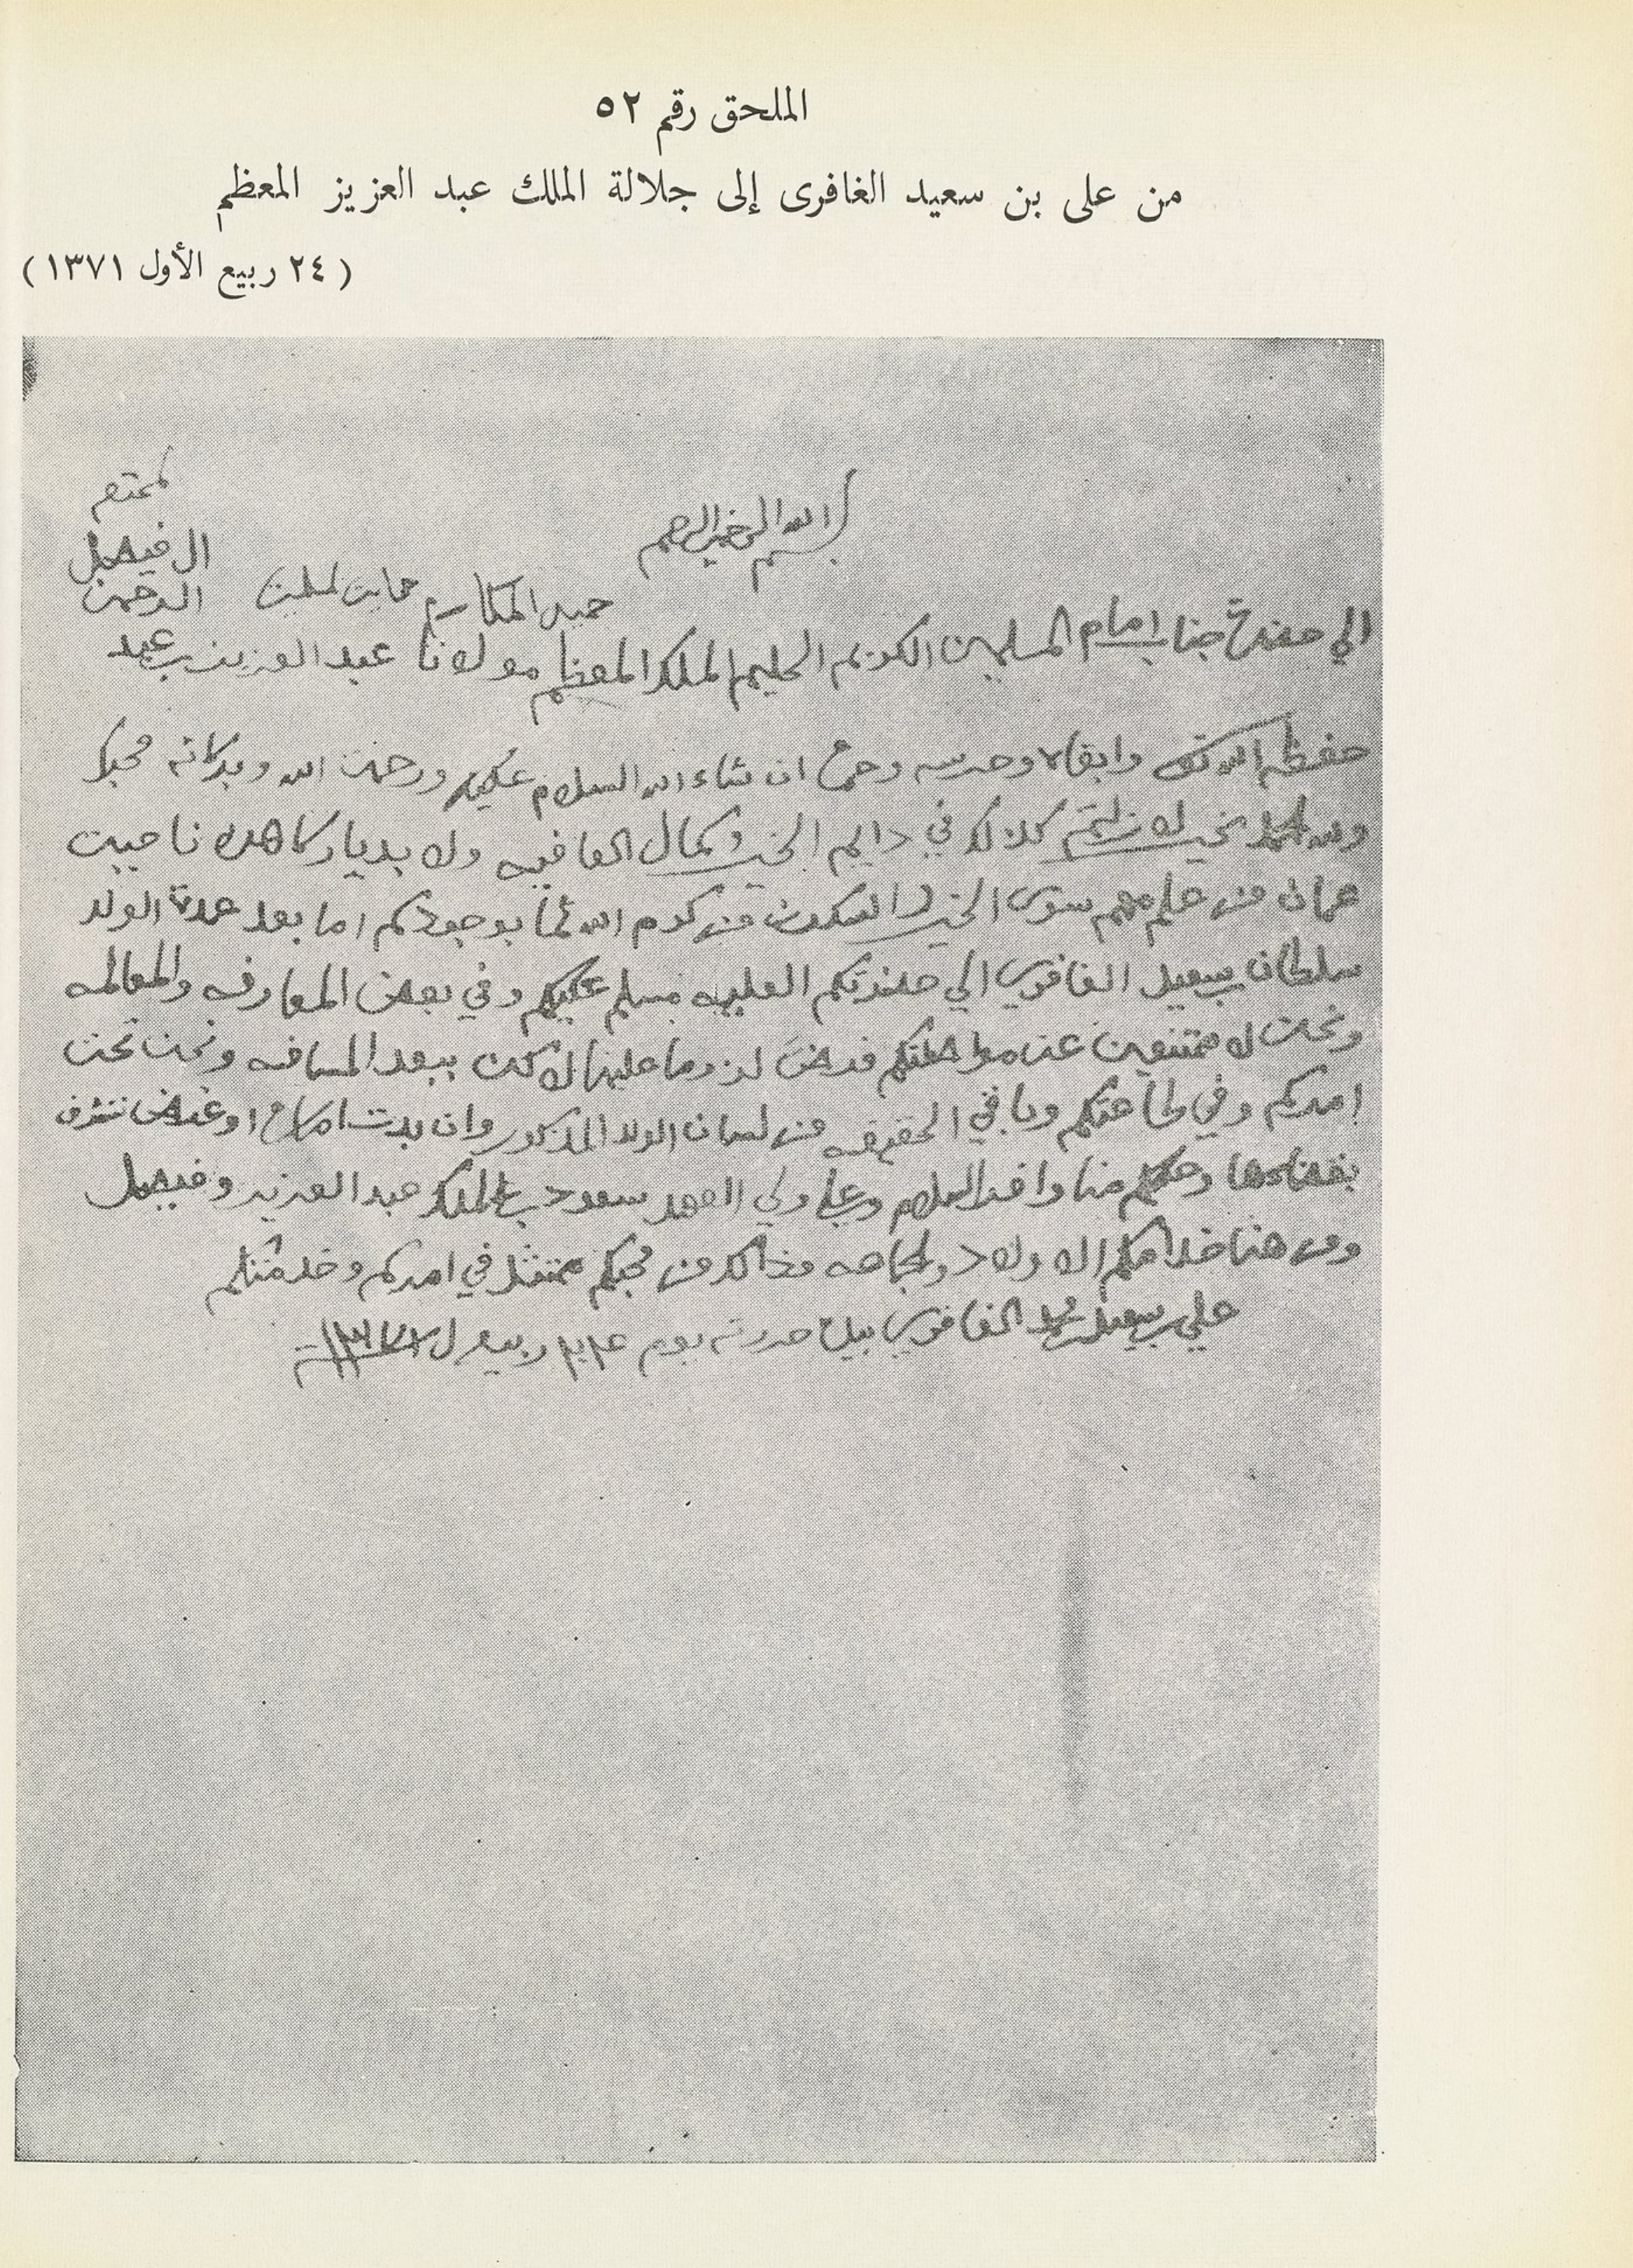 الملحق رقم ٥٢
من على بن سعيد الغافرى إلى جلالة الملك عبد العزيز المعظم
(٢٤ ربيع الأول ١٣٧١)
بسم الله الرحمن الرحيم
المحترم
حميد المكارم
ال فيصل
الي حضرة جناب امام المسلمين الكريم الحليم الملك المعظم مولانا عبد العزيز بن عبد الرحمن
حفظه الله تعالى وابقاه وحرسه ان شاء الله السلام عليكم ورحمت الله وبركاته محبك
ولله الحمد بخير لا زلتم كذلك في دايم الخير وكمال العافيه ولا بديارنا هذه ناحيت
عمان من علم مهم سوى الخير والسكون من كرم الله ثم بوجودكم اما بعد عمدة الولد
سلطان بن سعيد الغافري الي حضرتكم العليه مسلم عليكم وفي بعض المعارفه والمعالمه
ونحن لا ممتنعين عن مواصلتكم فرض لزوما علينا لاكن ببعد المسافه ونحن تحت
امركم وفي طاعتكم وباقي الحقيقه من لسان الولد المذكور وان بدت او غرض نتشرف
بقضاها منا وافر السلام وعلى ولي العهد سعود بن الملك عبد العزيز وفيصل
ومن هنا خدامكم الاولاد والجماعه من محبكم ممتثل في امركم وخدمتكم
علي بن سعيد بن محمد الغافري بيده حررته يوم ٢٤ ربيع ل ١٣٧١